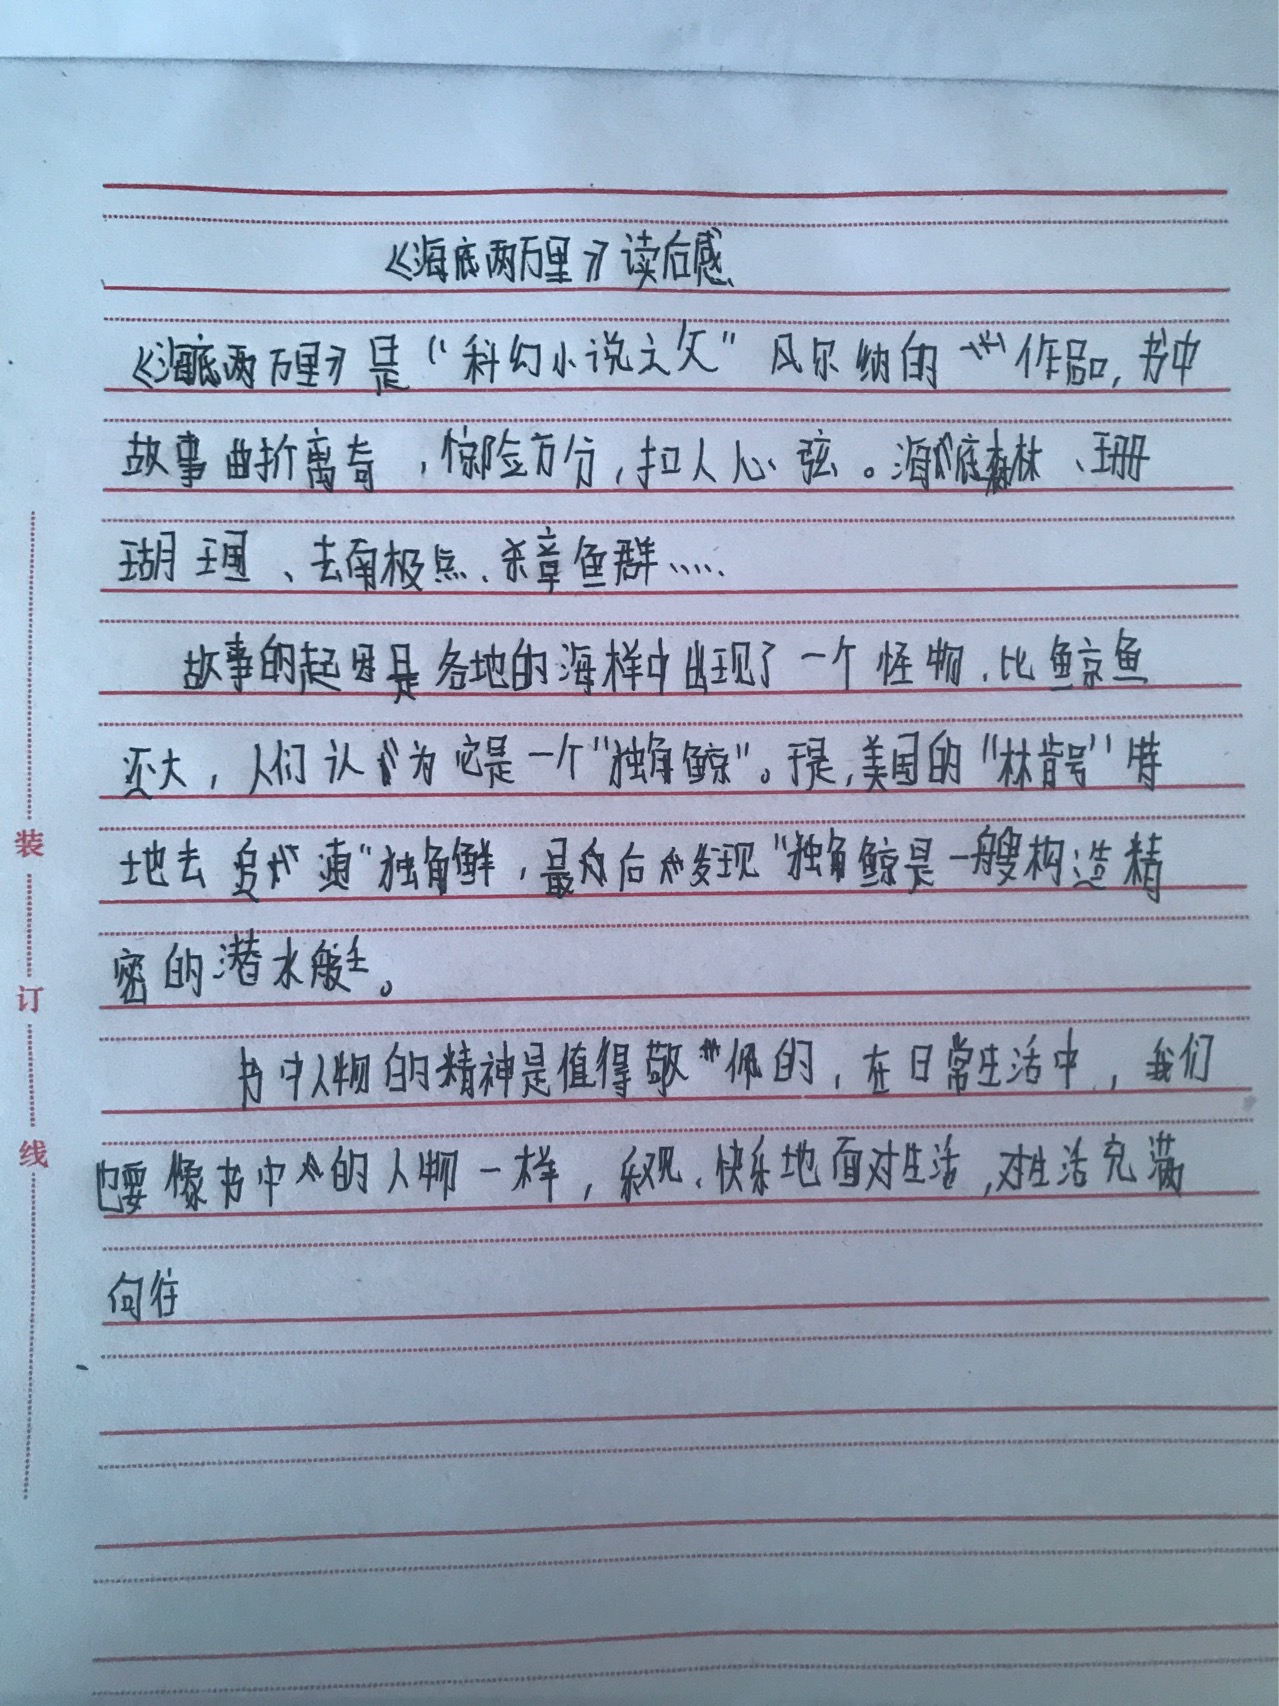 《海底两万里》读后感
《海底两万里》是“科幻小说之父”凡尔纳的作品,书中
故事曲折离奇,惊险万分,扣人心弦。海底森林、珊
瑚王国、去南极点、杀章鱼群……
故事的起因是各地的海样中出现了一个怪物、比鲸鱼
还大,人们认为它是一个“独角鲸”。于是,美国的“林肯号”特
地去 “独角鲜,最后发现“独角鲸是一艘构造精
密的潜水艇。
书中人物的精神是值得敬佩的,在日常生活中,我们
也要像书中的人物一样,乐观、快乐地面对生活,对生活充满
向往
装
订
线